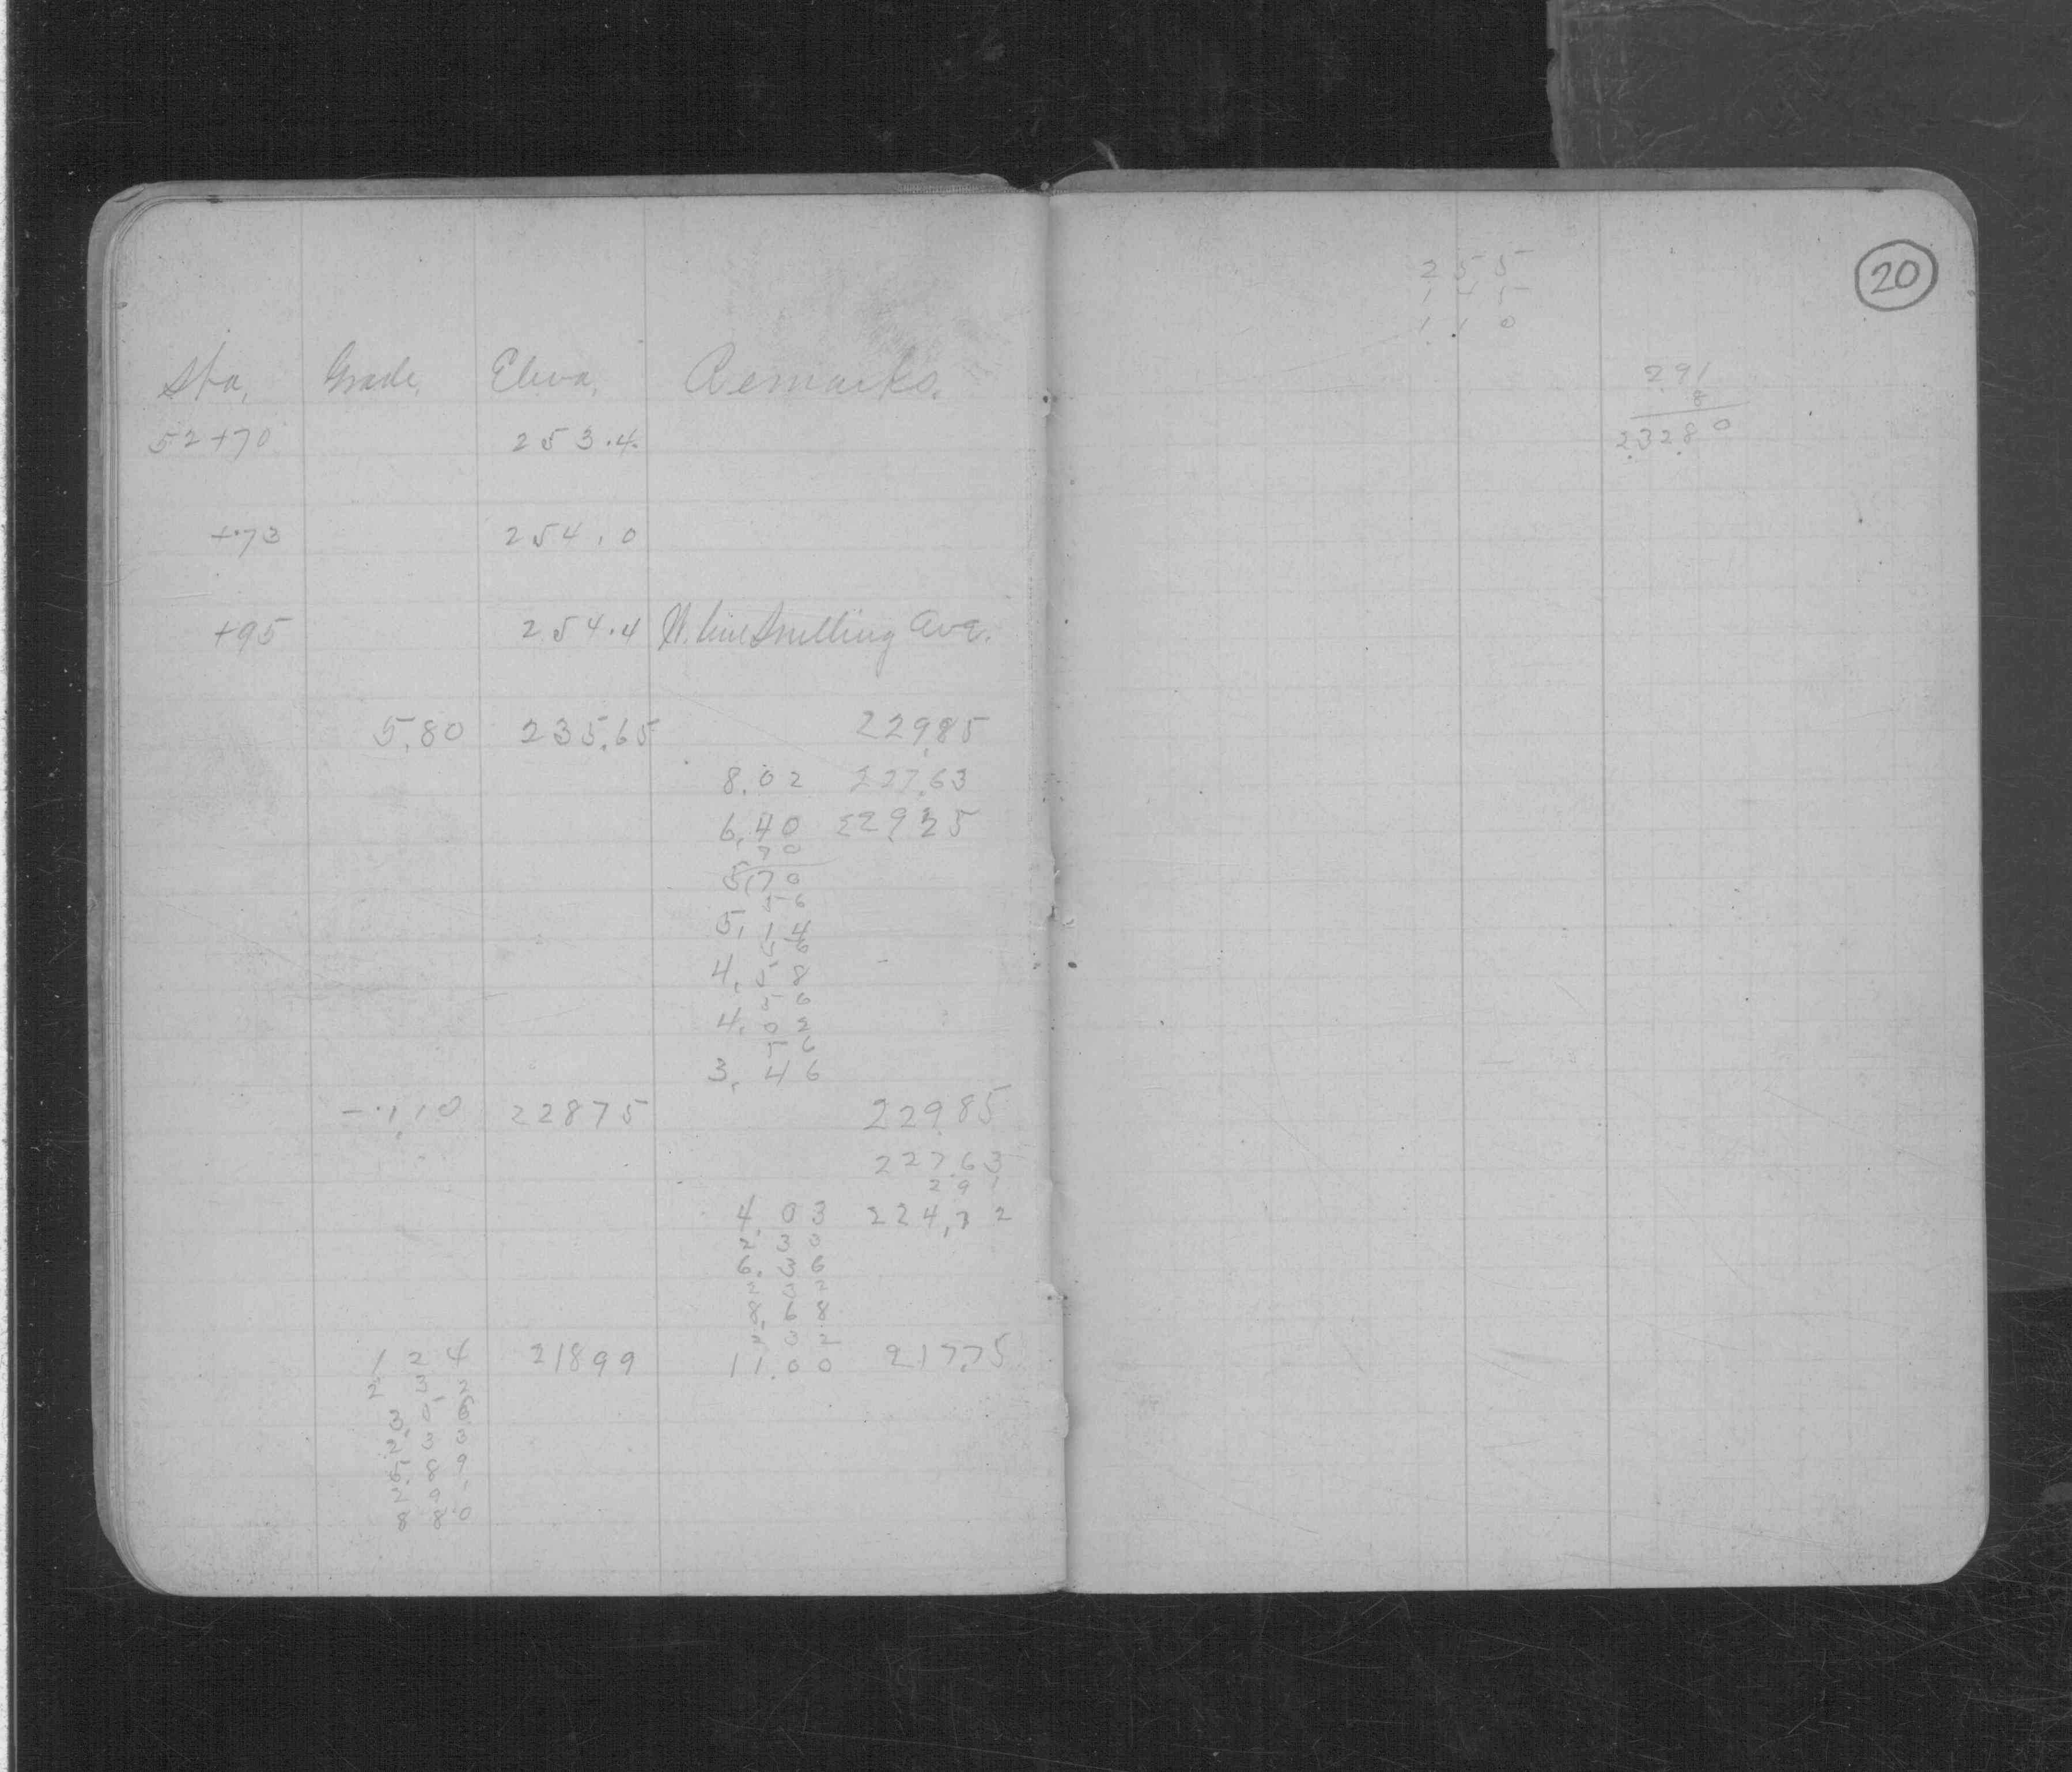 Sta. Grade. Eleva. Remarks.
52+70 253.4
+73 254.0
+95 254.4 W. line Snelling Ave.
5.80 235.65 229.85
8.02 227.63
6.40 229.25
70
5.70
56
5.14
56
4.58
56
4.02
56
3.46
-1.10 22875 229.85
227.63
291
4.03 224.72
2.33
6.36
2 32
8.68
2 32
1 2 4 21899 11.00 217.75
2 3 2
3 5 6
2.3 3
5.8 9
2 9 1
8 8 0
20
2 5 5
1 4 5
1 1 0
2.91
8
2328 0